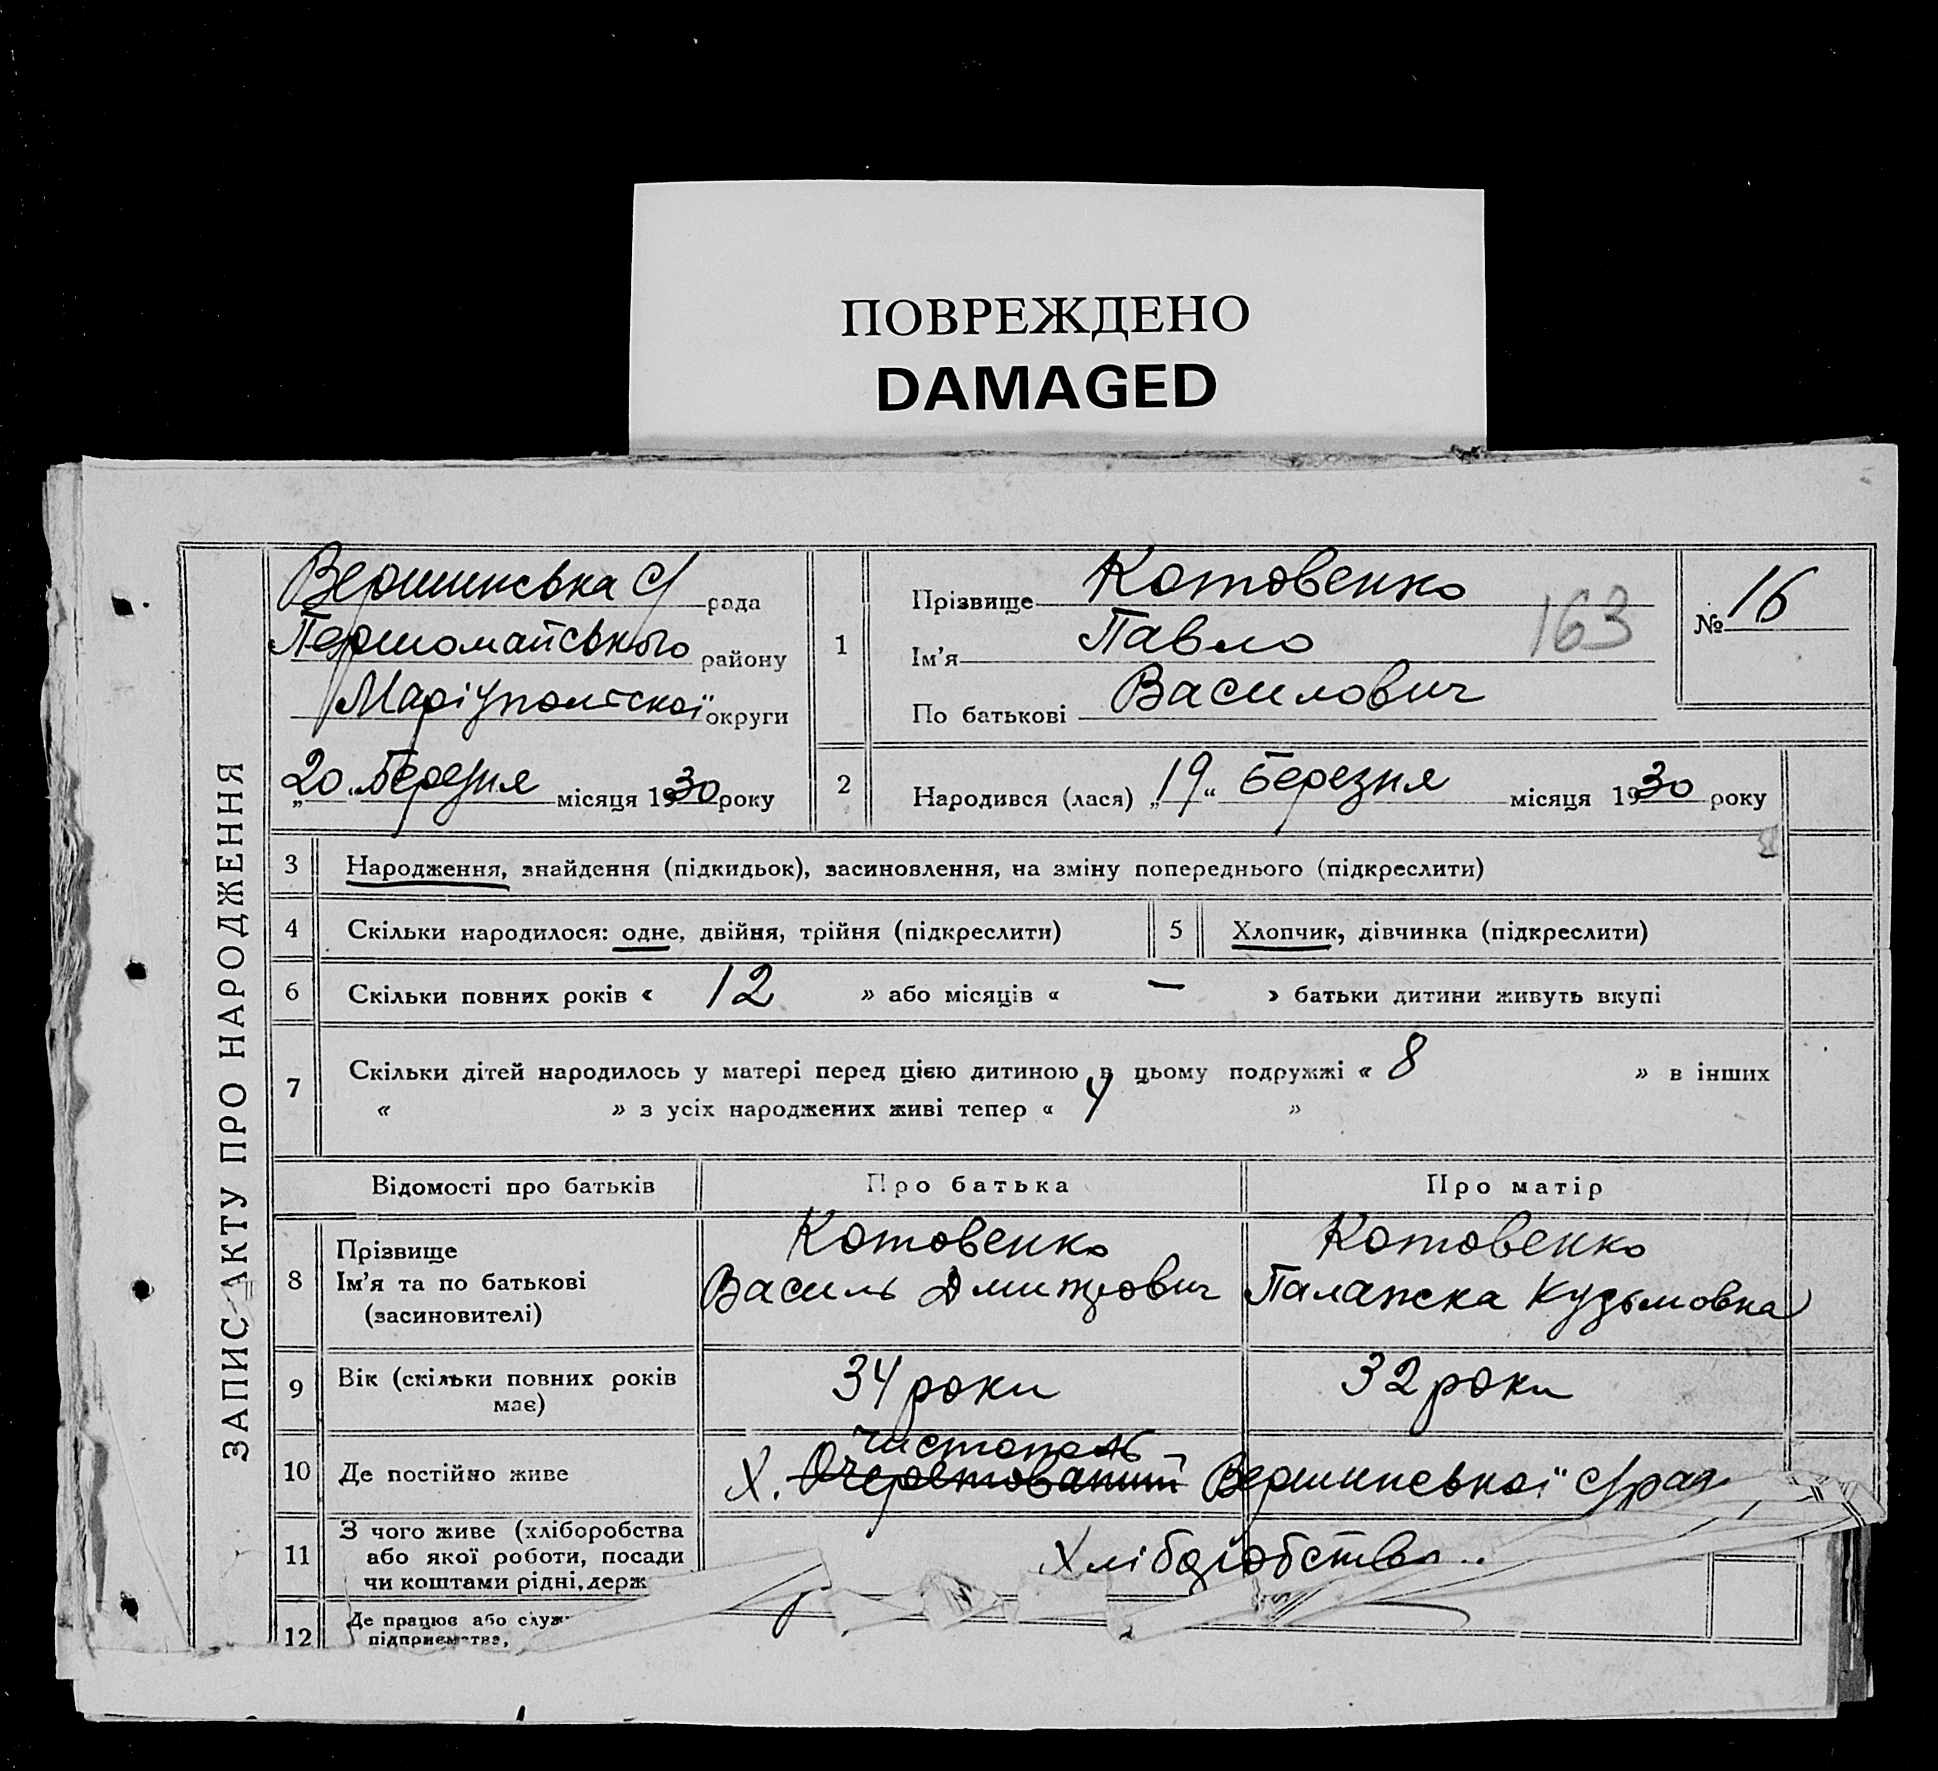 ПОВРЕЖДЕНО
DAMAGED
ЗАПИС АКТУ ПРО НАРОДЖЕННЯ
Вершинська с/ рада
Першомайського району
Маріупольскої округи
„20“ Березня місяця 1930 року
1 Прізвище Котовенко
Ім'я Павло
По батькові Василович
163
№ 16
2 Народився (лася) „19“ Березня місяця 1930 року
3 Народження, знайдення (підкидьок), засиновлення, на зміну попереднього (підкреслити)
4 Скільки народилося: одне, двійня, трійня (підкреслити) 5 Хлопчик, дівчинка (підкреслити)
6 Скільки повних років « 12 » або місяців « — » батьки дитини живуть вкупі
7 Скільки дітей народилось у матері перед цією дитиною в цьому подружжі « 8 » в інших
« » з усіх народжених живі тепер « 4 »
Відомості про батьків Про батька Про матір
8 Прізвище Котовенко Котовенко
Ім'я та по батькові Василь Дмитрович Палажка Кузьмовна
(засиновителі)
9 Вік (скільки повних років 34 роки 32 роки
має)
Чистополь
10 Де постійно живе Х. Очеретоватий Вершинської с/рад
11 З чого живе (хліборобства
або якої роботи, посади Хліборобство
чи коштами рідні, держ
12 Де працює або служ
підприємства,